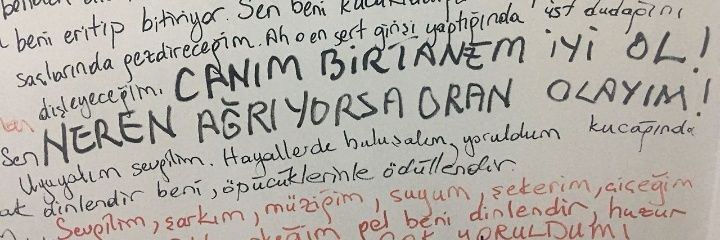 beni eritip bitiriyor. Sen beni
saçlarında gezdireceğim. Ah o en sert girişi yaptığında üst dudağını
dişleyeceğim. CANIM BİRTANEM İYİ OL!
Sen NEREN AĞRIYORSA ORAN OLAYIM!
Uyuyalım sevgilim. Hayallerde buluşalım, yoruldum kucağında
dinlendir beni, öpücüklerinle ödüllendir.
Sevgilim, şarkım, müziğim, suyum, şekerim, çiçeğim
gel beni dinlendir, huzur
YORULDUM!